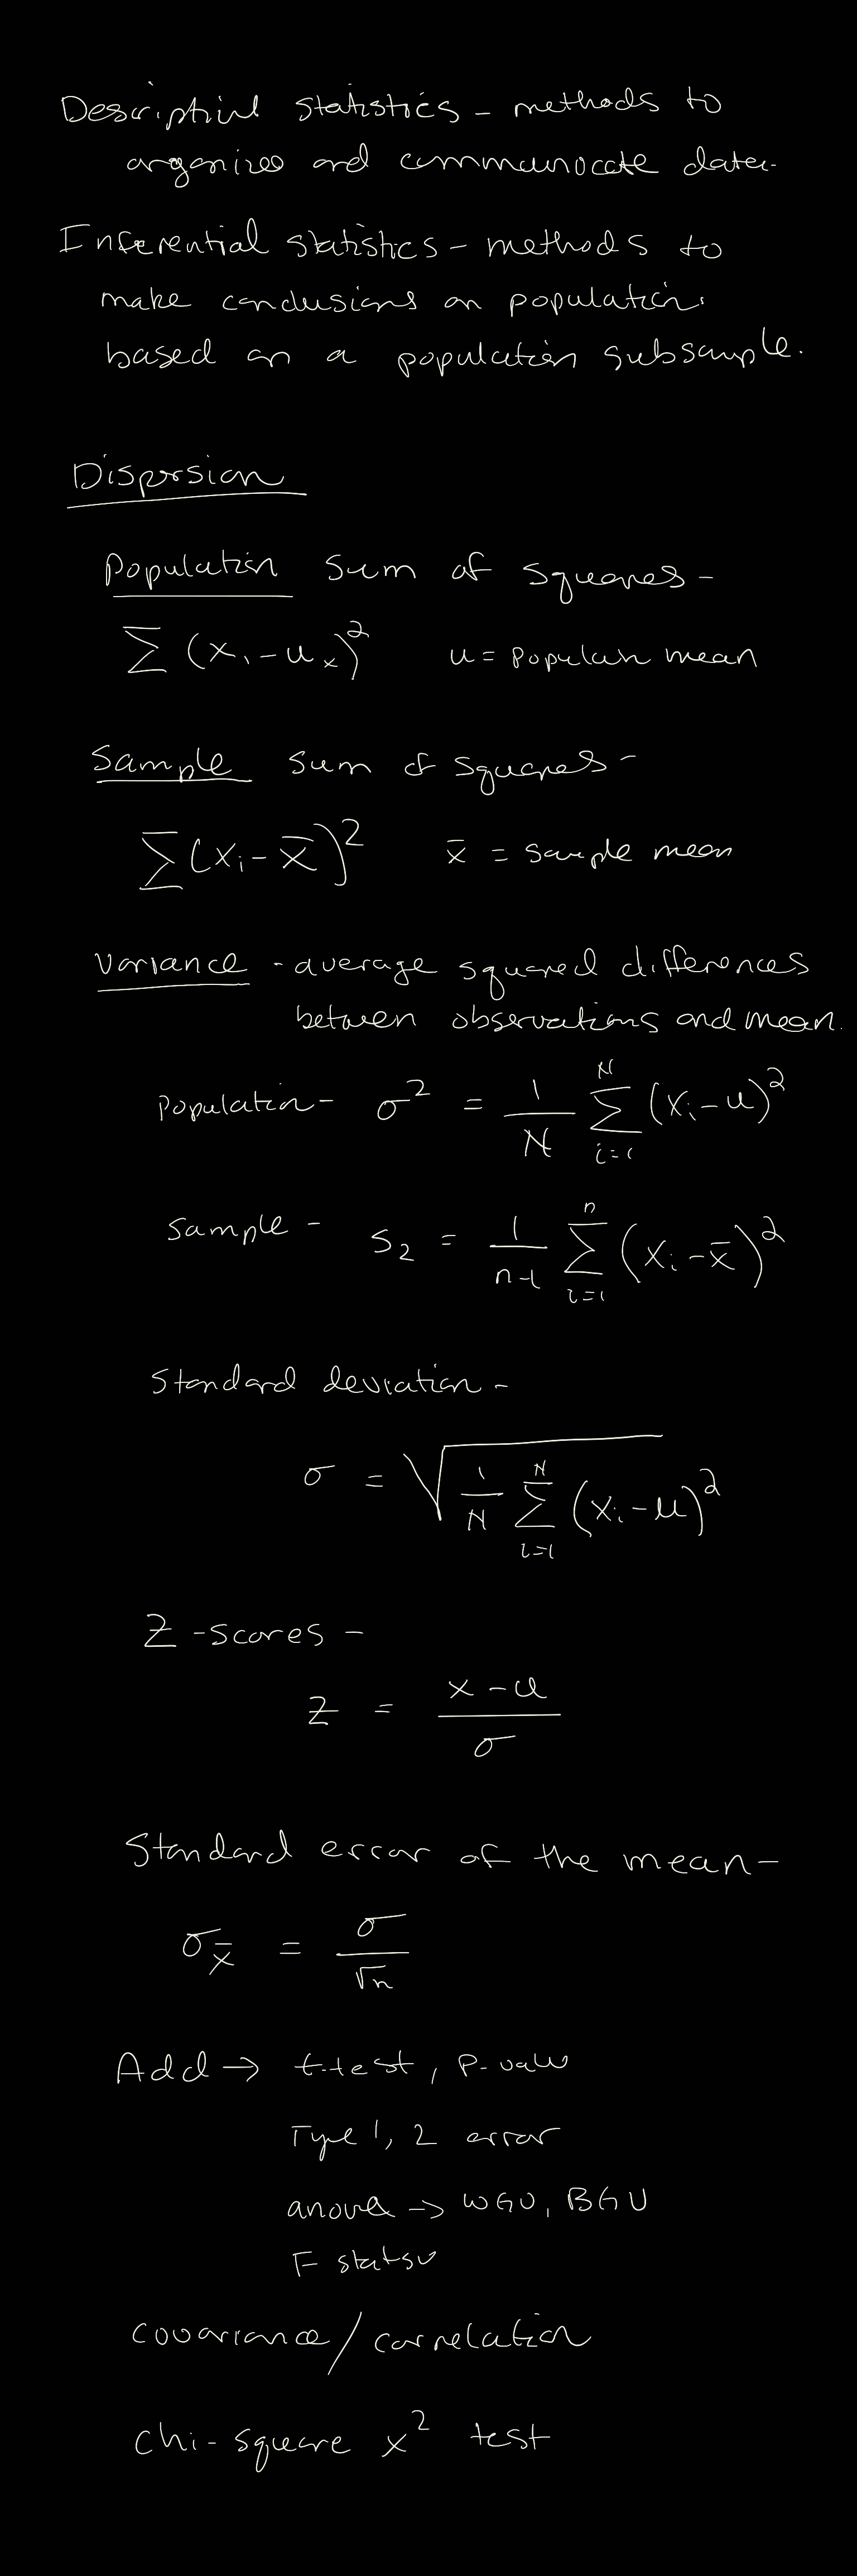 Descriptive statistics - methods to
organize and communicate data.
Inferential statistics - methods to
make conclusions on population
based on a population subsample.
Dispersion
Population sum of squares -
∑ (xᵢ - uₓ)² u = population mean
Sample sum of squares -
∑(xᵢ - x̄)² x̄ = sample mean
Variance - average squared differences
between observations and mean.
Population - σ² = 1/N ∑ᵢ₌₁ᴺ (xᵢ - u)²
Sample - S₂ = 1/(n-1) ∑ᵢ₌₁ⁿ (xᵢ - x̄)²
Standard deviation -
σ = √(1/N ∑ᵢ₌₁ᴺ (xᵢ - u)²)
Z - scores -
Z = (x - u)/σ
Standard error of the mean -
σx̄ = σ/√n
Add → t-test, P-value
Type 1, 2 error
anova → WGV, BGV
F
covariance/correlation
chi-square x² test